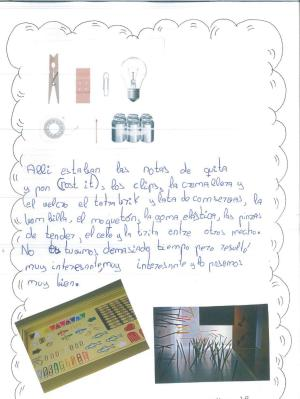 Allí estaban las notas de quita
y pon (Post it), los clips, la cremallera y
el velcro el tetrabrik y lata de conservas, la
bombilla, el mosquetón, la goma elástica, las pinzas
de tender, el celo y la tirita entre otros mucho.
No tuvimos demasiado tiempo pero resultó
muy interesante muy interesante y lo pasamos
muy bien.